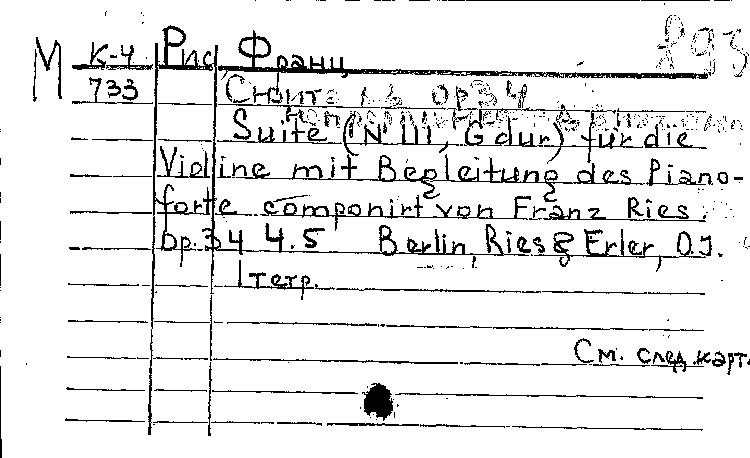 М К-4 Рис, Франц 893
733 Сюита ор 34
Suite (N III, G dur) für die
Violine mit Begleitung des Piano-
forte componirt von Franz Ries.
Op. 34 4.5 Berlin, Ries & Erler, O.J.
1 тетр.
См. след. карт.